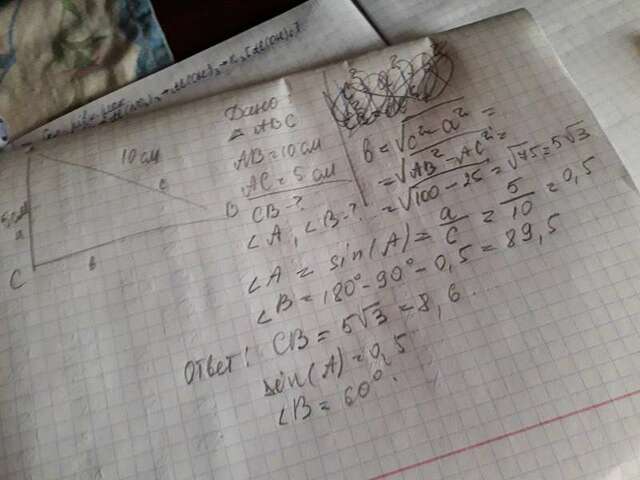 10 см
5 см
a
c
B
C
b
Дано
△ ABC
AB = 10 см
AC = 5 см
CB - ?
∠A, ∠B - ?
b = √c² - a² =
= √AB² - AC² =
= √100 - 25 = √75 = 5√3
∠A = sin(A) = a/c = 5/10 = 0,5
∠B = 180° - 90° - 0,5 = 89,5
Ответ: CB = 5√3 = 8,6...
sin(A) = 0,5
∠B = 60°.